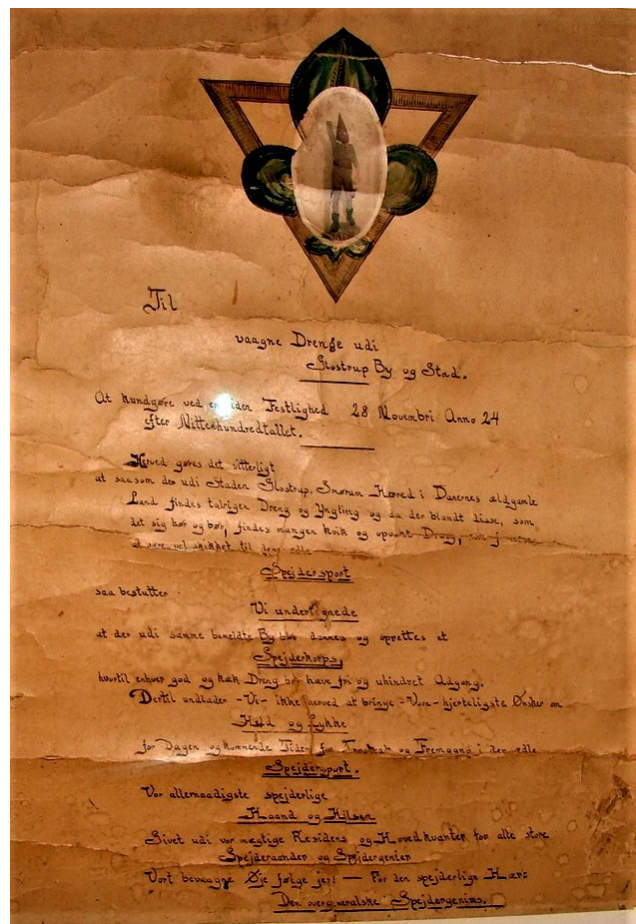 Til
vaagne Drenge udi
Glostrup By og Stad.
At kundgøre ved liden Festlighed 28 Novembri Anno 24
efter Nittenhundredtallet.
Herved gøres det vitterligt
at saasom der udi Staden Glostrup, Smørum Herred i Danernes ældgamle
Land findes talrigen Dreng og Yngling og da der blandt disse, som
det sig hør og bør, findes mangen kvik og opvakt Dreng, som
skikket til
Spejdersport
saa beslutter
Vi undertegnede
at der udi samme beneldte By bør dannes og oprettes et
Spejderkorps,
hvortil enhver god og kæk Dreng bør have fri og uhindret Adgang.
Dertil undlader -Vi- ikke herved at bringe -Vore- hjerteligste Ønsker om
Held og Lykke
for Dagen og kommende Tider for og Fremgang i den ædle
Spejdersport.
Vor allernaadigste spejderlige
Haand og Hilsen
Givet udi vor mægtige Residens og Hovedkvarter for alle store
Spejderaander og Spejdergenier
Vort bevaagne Øje følge jer! — For den spejderlige Hær:
Den overgeneralske Spejdergenius.